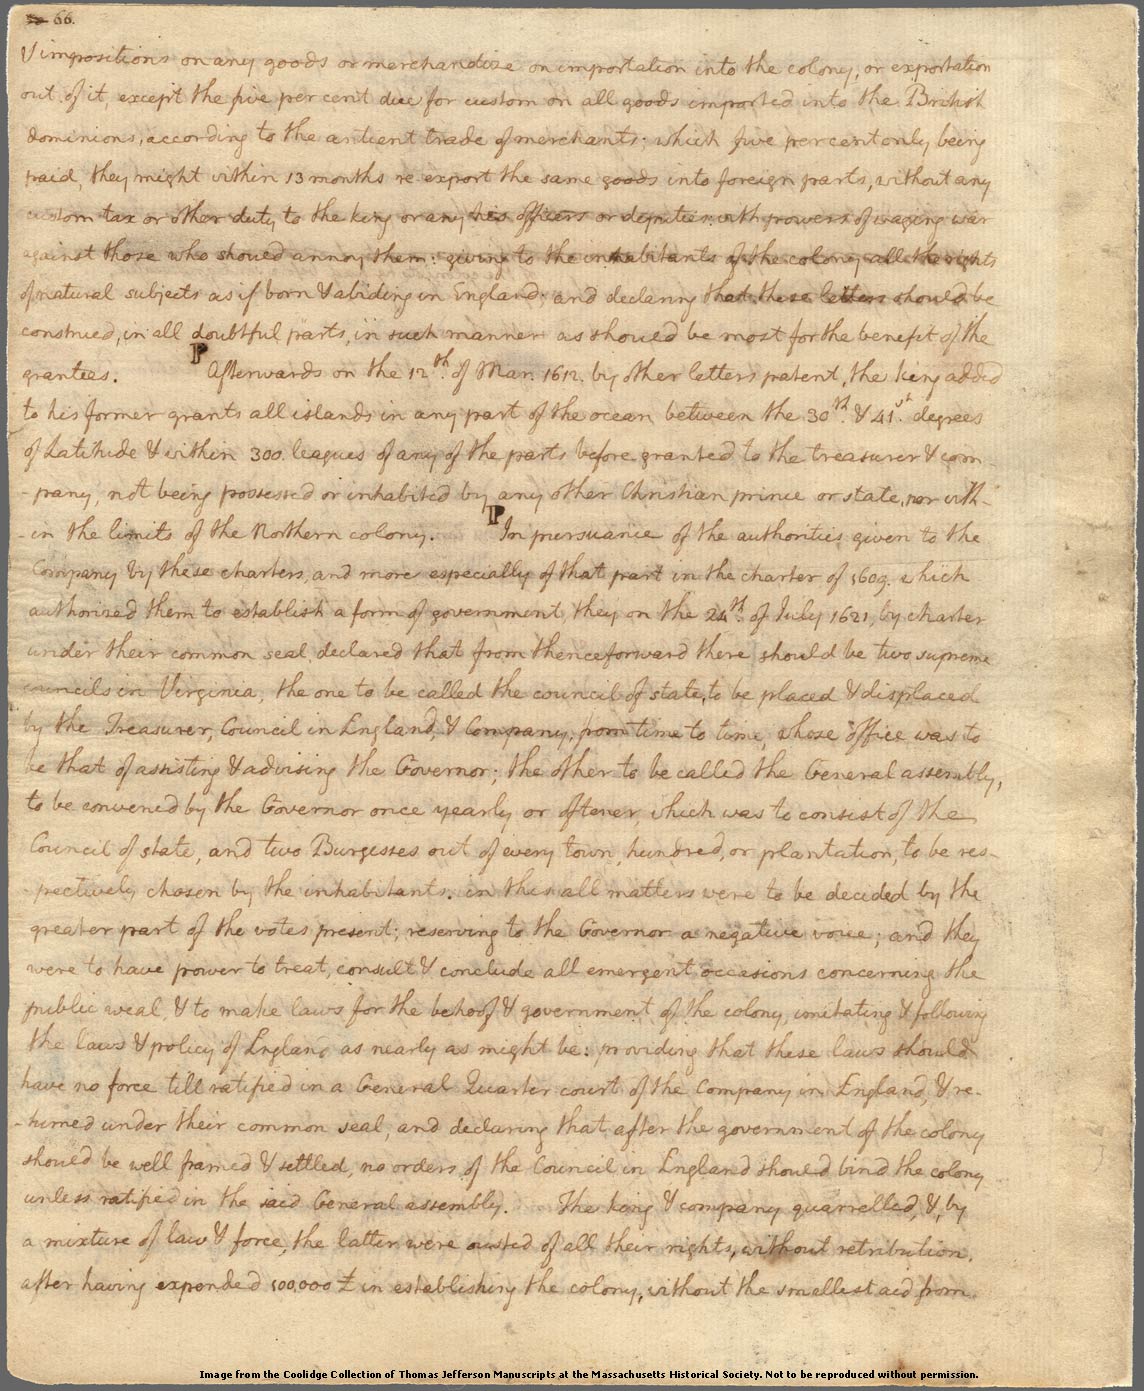 66.
& impositions on any goods or merchandize on importation into the colony, or exportation
out of it, except the five per cent due for custom on all goods imported into the British
dominions, according to the antient trade of merchants; which five per cent only being
paid, they might within 13 months re-export the same goods into foreign parts, without any
custom tax or other duty to the king or any his officers or deputies: with powers of waging war
against those who should annoy them: giving to the inhabitants of the colony all the rights
of natural subjects as if born & abiding in England; and declaring that these letters should be
construed, in all doubtful parts, in such manner as should be most for the benefit of the
grantees. P Afterwards on the 12th. of Mar. 1612. by other letters patent, the king added
to his former grants all islands in any part of the ocean between the 30th. & 41st. degrees
of Latitude & within 300. leagues of any of the parts before granted to the treasurer & com-
-pany, not being possessed or inhabited by any other Christian prince or state, nor with-
-in the limits of the Northern colony. P In pursuance of the authorities given to the
Company by these charters, and more especially of that part in the charter of 1609. which
authorised them to establish a form of government, they on the 24th. of July 1621, by charter
under their common seal, declared that from thenceforward there should be two supreme
councils in Virginia, the one to be called the council of state, to be placed & displaced
by the Treasurer, Council in England, & Company, from time to time, whose office was to
be that of assisting & advising the Governor; the other to be called the General assembly,
to be convened by the Governor once yearly or oftener, which was to consist of the
Council of state, and two Burgesses out of every town, hundred, or plantation, to be res-
-pectively chosen by the inhabitants. in this all matters were to be decided by the
greater part of the votes present; reserving to the Governor a negative voice; and they
were to have power to treat, consult & conclude all emergent occasions concerning the
public weal, & to make laws for the behoof & government of the colony, imitating & following
the laws & policy of England as nearly as might be: providing that these laws should
have no force till ratified in a General Quarter court of the Company in England, & re-
-turned under their common seal, and declaring that after the government of the colony
should be well framed & settled, no orders of the Council in England should bind the colony
unless ratified in the said General assembly. The king & company quarrelled, &, by
a mixture of law & force, the latter were ousted of all their rights, without retribution,
after having expended 100,000 £ in establishing the colony, without the smallest aid from
Image from the Coolidge Collection of Thomas Jefferson Manuscripts at the Massachusetts Historical Society. Not to be reproduced without permission.